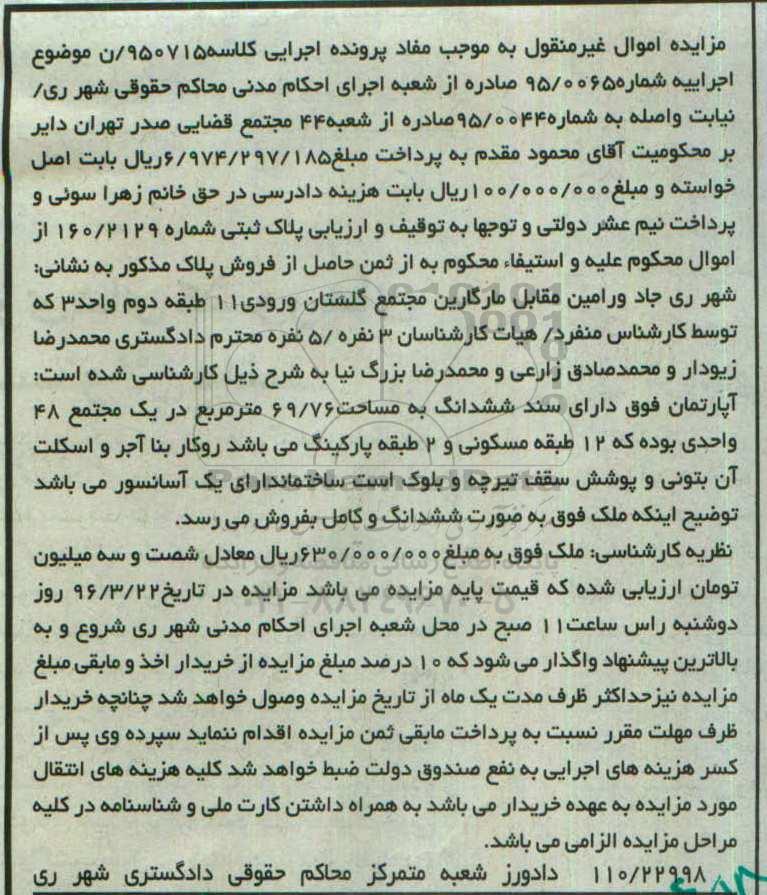 مزایده اموال غیرمنقول به موجب مفاد پرونده اجرایی کلاسه۹۵۰۷۱۵/ن موضوع
اجراییه شماره۹۵/۰۰۶۵ صادره از شعبه اجرای احکام مدنی محاکم حقوقی شهر ری/
نیابت واصله به شماره۹۵/۰۰۴۴صادره از شعبه۴۴ مجتمع قضایی صدر تهران دایر
بر محکومیت آقای محمود مقدم به پرداخت مبلغ۶/۹۷۴/۲۹۷/۱۸۵ریال بابت اصل
خواسته و مبلغ۱۰۰/۰۰۰/۰۰۰ریال بابت هزینه دادرسی در حق خانم زهرا سوئی و
پرداخت نیم عشر دولتی و توجها به توقیف و ارزیابی پلاک ثبتی شماره ۱۶۰/۲۱۲۹ از
اموال محکوم علیه و استیفاء محکوم به از ثمن حاصل از فروش پلاک مذکور به نشانی:
شهر ری جاد ورامین مقابل مارگارین مجتمع گلستان ورودی۱۱ طبقه دوم واحد۳ که
توسط کارشناس منفرد/ هیات کارشناسان ۳ نفره /۵ نفره محترم دادگستری محمدرضا
زیودار و محمدصادق زارعی و محمدرضا بزرگ نیا به شرح ذیل کارشناسی شده است:
آپارتمان فوق دارای سند ششدانگ به مساحت۶۹/۷۶ مترمربع در یک مجتمع ۴۸
واحدی بوده که ۱۲ طبقه مسکونی و ۲ طبقه پارکینگ می باشد روکار بنا آجر و اسکلت
آن بتونی و پوشش سقف تیرچه و بلوک است ساختماندارای یک آسانسور می باشد
توضیح اینکه ملک فوق به صورت ششدانگ و کامل بفروش می رسد.
نظریه کارشناسی: ملک فوق به مبلغ۶۳۰/۰۰۰/۰۰۰ریال معادل شصت و سه میلیون
تومان ارزیابی شده که قیمت پایه مزایده می باشد مزایده در تاریخ۹۶/۳/۲۲ روز
دوشنبه راس ساعت۱۱ صبح در محل شعبه اجرای احکام مدنی شهر ری شروع و به
بالاترین پیشنهاد واگذار می شود که ۱۰ درصد مبلغ مزایده از خریدار اخذ و مابقی مبلغ
مزایده نیزحداکثر ظرف مدت یک ماه از تاریخ مزایده وصول خواهد شد چنانچه خریدار
ظرف مهلت مقرر نسبت به پرداخت مابقی ثمن مزایده اقدام ننماید سپرده وی پس از
کسر هزینه های اجرایی به نفع صندوق دولت ضبط خواهد شد کلیه هزینه های انتقال
مورد مزایده به عهده خریدار می باشد به همراه داشتن کارت ملی و شناسنامه در کلیه
مراحل مزایده الزامی می باشد.
۱۱۰/۲۲۹۹۸ دادورز شعبه متمرکز محاکم حقوقی دادگستری شهر ری